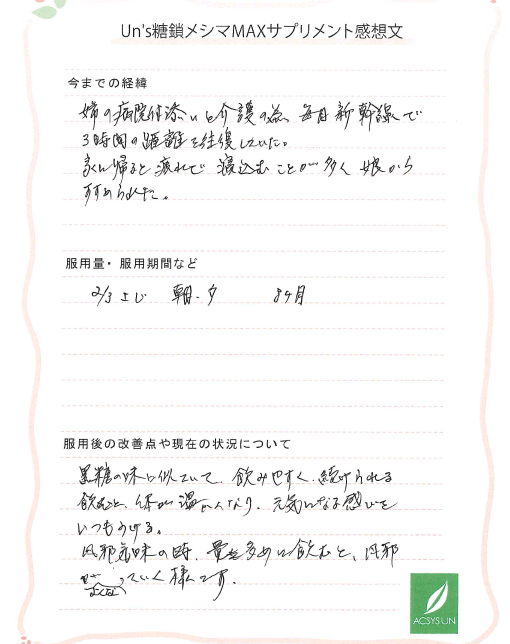 Un's糖鎖メシマMAXサプリメント感想文
今までの経緯
姉の病院付添いと介護の為、毎日新幹線で
3時間の距離を往復していた。
家に帰ると疲れで寝込むことが多く娘から
すすめられた。
服用量・服用期間など
2/3さじ 朝・夕 8ヶ月
服用後の改善点や現在の状況について
黒糖の味に似ていて、飲みやすく、続けられる
飲むと、体が温かくなり、元気になる感じを
いつもうける。
風邪気味の時、量を多めに飲むと、風邪
っていく様です。
ACSYSUN